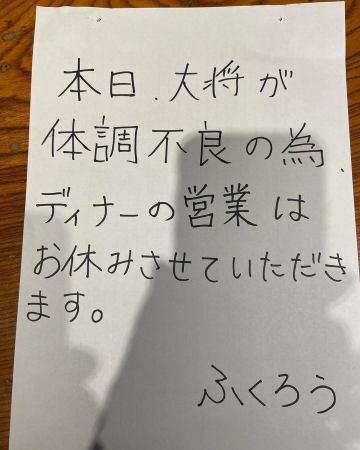 本日、大将が
体調不良の為、
ディナーの営業は
お休みさせていただき
ます。
ふくろう